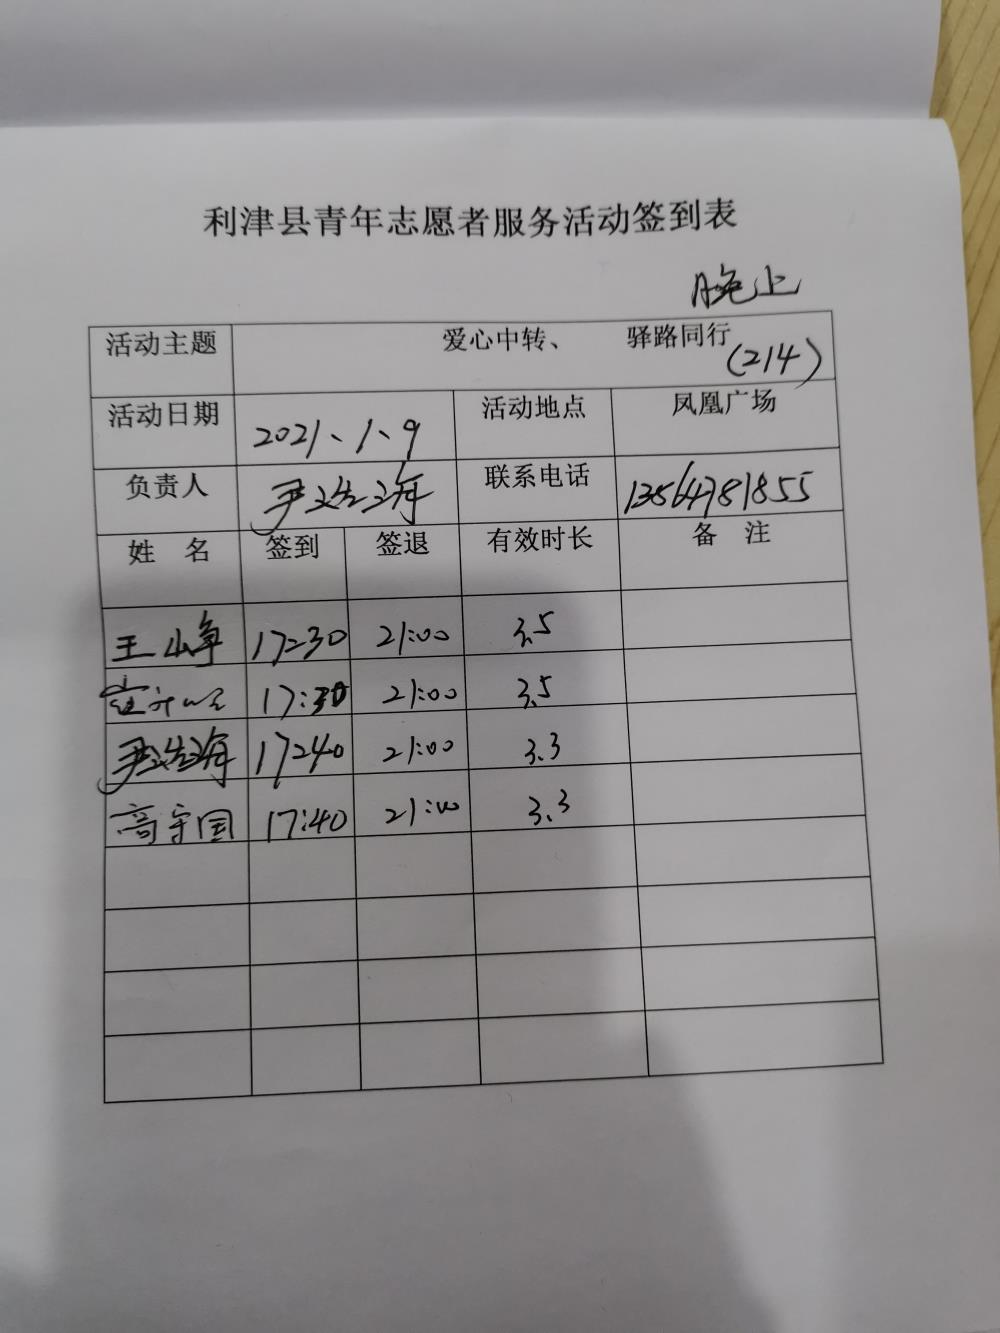 利津县青年志愿者服务活动签到表
晚上
活动主题 爱心中转、 驿路同行 (214)
活动日期 2021、1、9 活动地点 凤凰广场
负责人 尹海 联系电话 13564781855
姓 名 签到 签退 有效时长 备 注
王峥 17:30 21:00 3.5
17:30 21:00 3.5
尹海 17:40 21:00 3.3
高守国 17:40 21:00 3.3